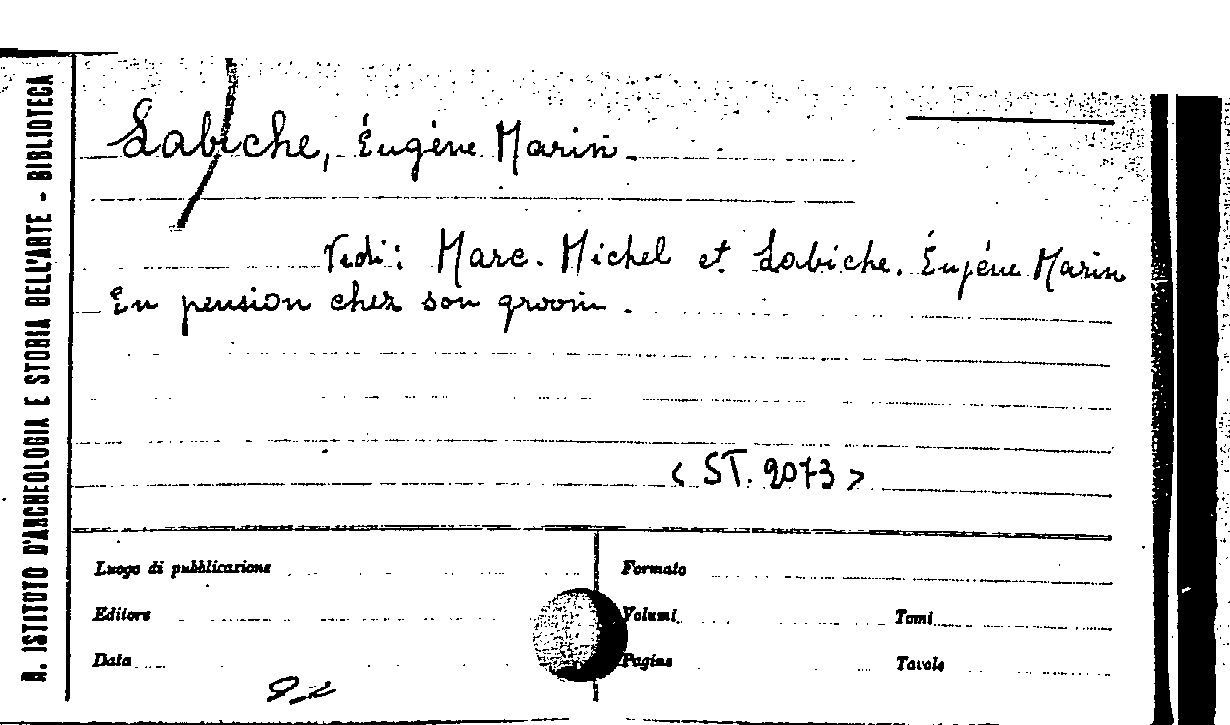 R. ISTITUTO D'ARCHEOLOGIA E STORIA DELL'ARTE - BIBLIOTECA
Labiche, Éugène Marin.
Vedi: Marc. Michel et Labiche. Éugène Marin
En pension chez son groom.
< ST. 2073 >
Luogo di pubblicazione
Formato
Editore
Volumi
Tomi
Data
Pagine
Tavole